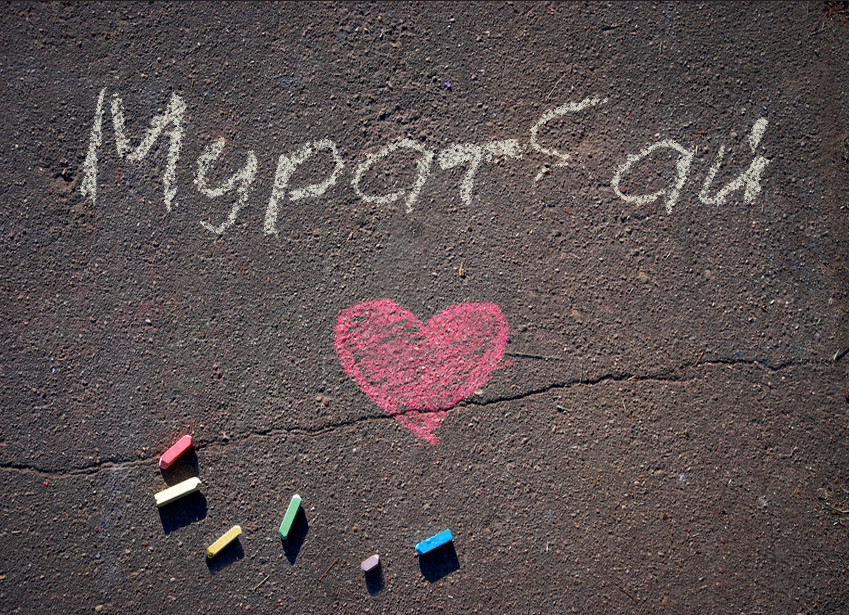 Муратбай